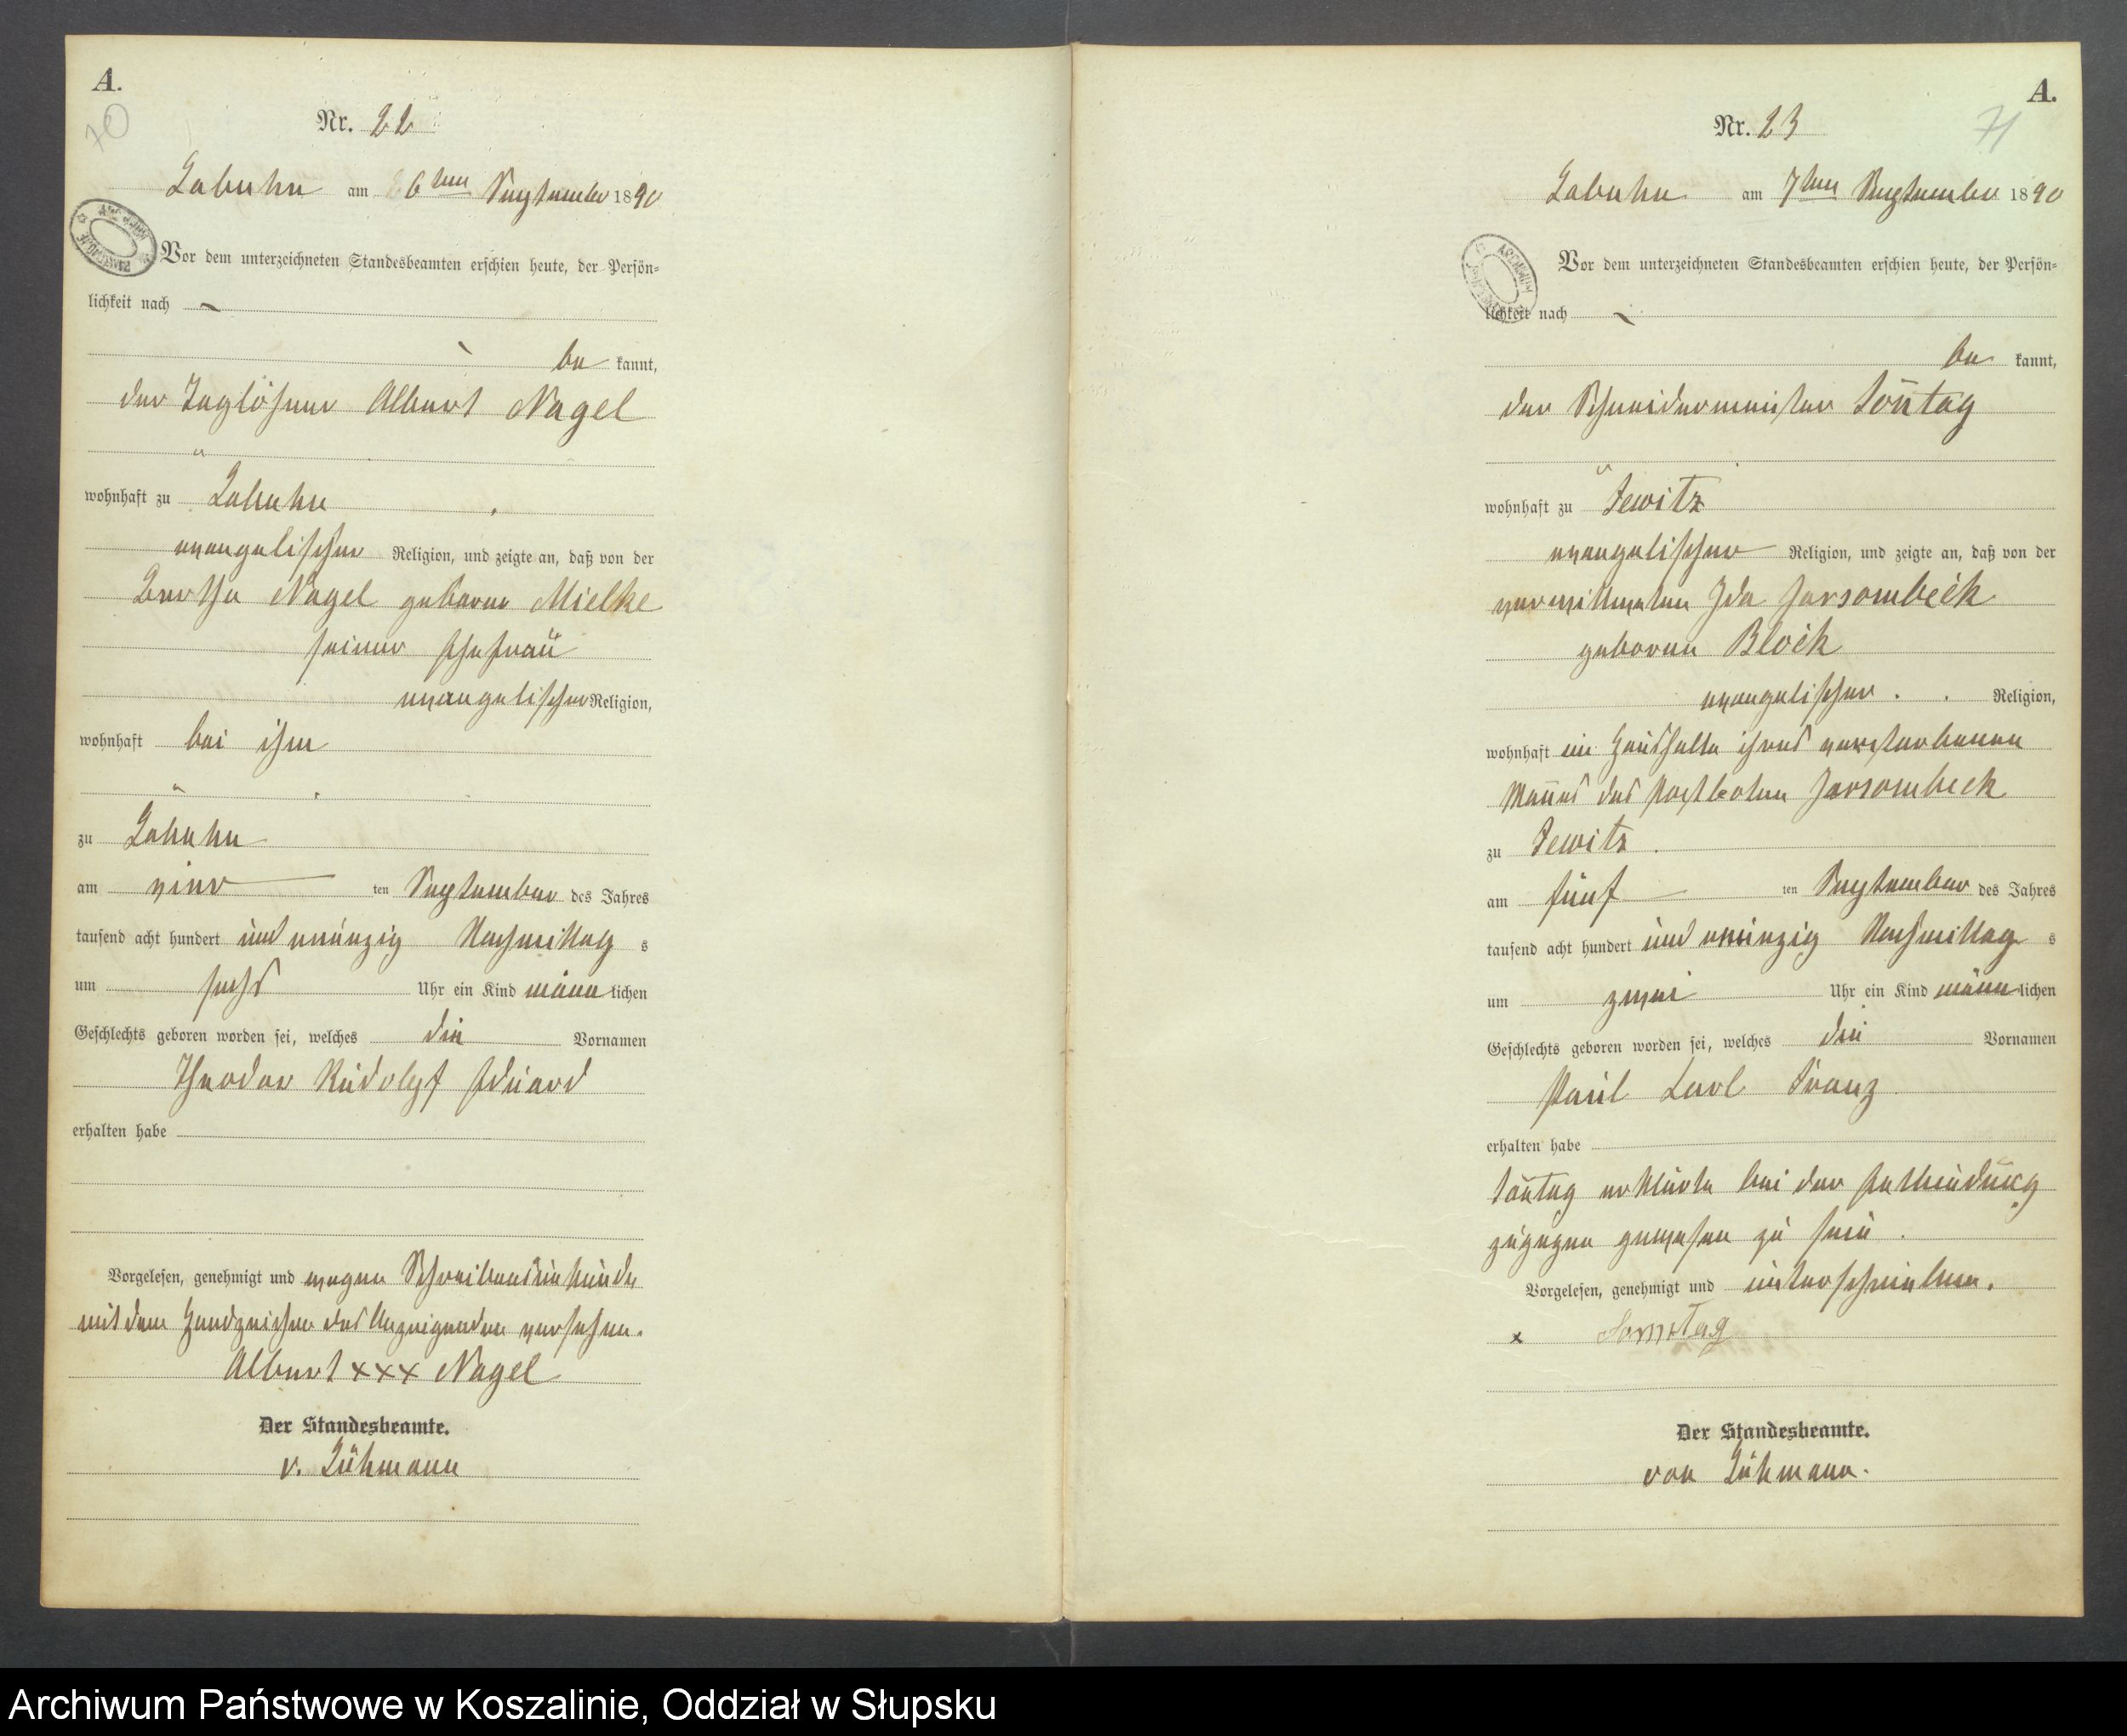 A.
70
Nr. 22
Labuhn am 6ten September 1890
Vor dem unterzeichneten Standesbeamten erschien heute, der Persön-
lichkeit nach
be kannt,
der Taglöhner Albert Nagel
wohnhaft zu Labuhn
evangelischer Religion, und zeigte an, daß von der
Bertha Nagel geborne Mielke
seiner Ehefrau
evangelischer Religion,
wohnhaft bei ihm
zu Labuhn
am vier ten September des Jahres
tausend acht hundert und neunzig Nachmittag s
um sechs Uhr ein Kind männ lichen
Geschlechts geboren worden sei, welches die Vornamen
Theodor Rudolf Eduard
erhalten habe
Vorgelesen, genehmigt und wegen Schreibensunkunde
mit dem Handzeichen des Anzeigenden versehen.
Albert xxx Nagel
Der Standesbeamte.
v. Lühmann
A.
71
Nr. 23
Labuhn am 7ten September 1890
Vor dem unterzeichneten Standesbeamten erschien heute, der Persön-
lichkeit nach
be kannt,
der Schneidermeister Soñtag
wohnhaft zu Jewitz
evangelischer Religion, und zeigte an, daß von der
verwittweten Ida Jarsombeck
geboren Block
evangelischer Religion,
wohnhaft im Haushalte ihres verstorbenen
Mañes des Postboten Jarsombeck
zu Jewitz
am fünf ten September des Jahres
tausend acht hundert und neunzig Nachmittag s
um zwei Uhr ein Kind männ lichen
Geschlechts geboren worden sei, welches die Vornamen
Paul Carl Franz
erhalten habe
Soñtag erklärte bei der Entbindung
zugegen gewesen zu sein.
Vorgelesen, genehmigt und unterschrieben.
x Sonntag
Der Standesbeamte.
von Lühmann.
Archiwum Państwowe w Koszalinie, Oddział w Słupsku